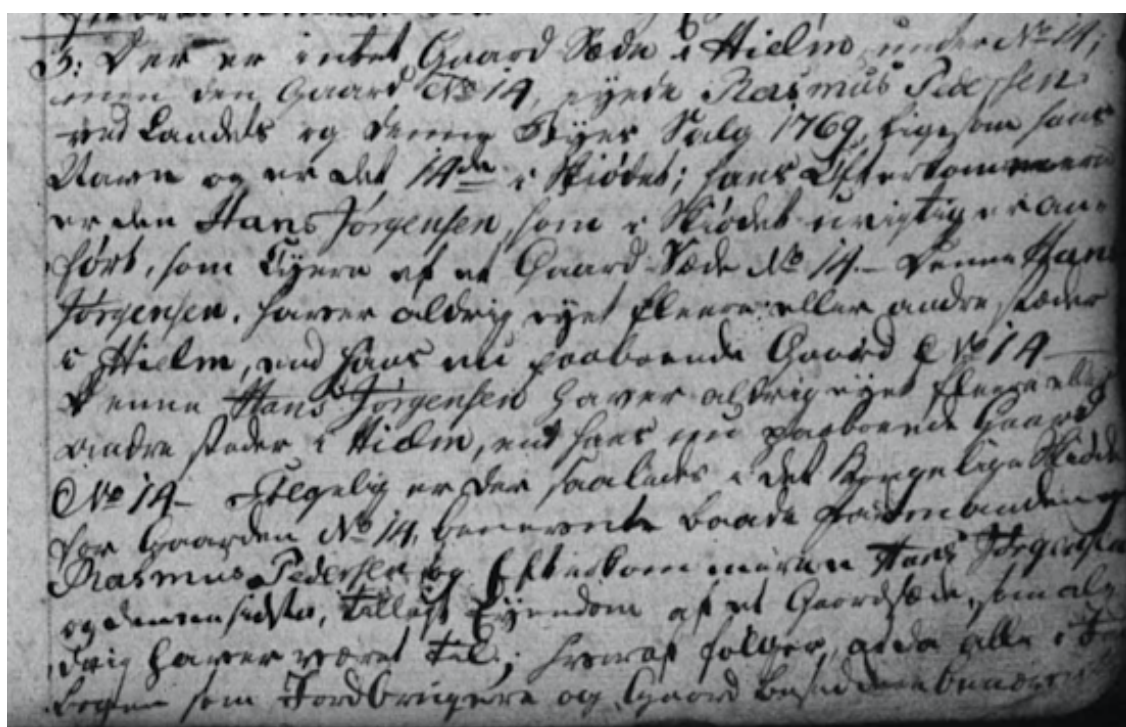 3: Der er intet Gaard Sæde i Hielm under No 14;
men den Gaard No 14, eyede Rasmus Pedersen
ved Landets og denne Byes Salg 1769, ligesom hans
Navn og er det 14de i Skiødet; hans Efterkommere
er den Hans Jørgensen, som i Skiødet urigtig er an-
ført, som Eyere af et Gaard-Sæde No 14 - Denne Hans
Jørgensen, haver aldrig eyet fleere eller andre stæder
i Hielm, end hans nu paaboende Gaard No 14
Denne Hans Jørgensen haver aldrig eyet fleere eller
andre steder i Hielm, end hans nu paaboende Gaard
No 14 - Følgelig er der saaledes i det Kongelige Skiøde
for Gaarden No 14, benevnte baade Formanden
Rasmus Pedersen og Efterkommeren Hans Jørgensen
og denne sidste, tillagt Eyendom af et Gaardsæde, som al-
drig haver været til; hvoraf følger, at da alle i
bogen som Jordbrugere og Gaard